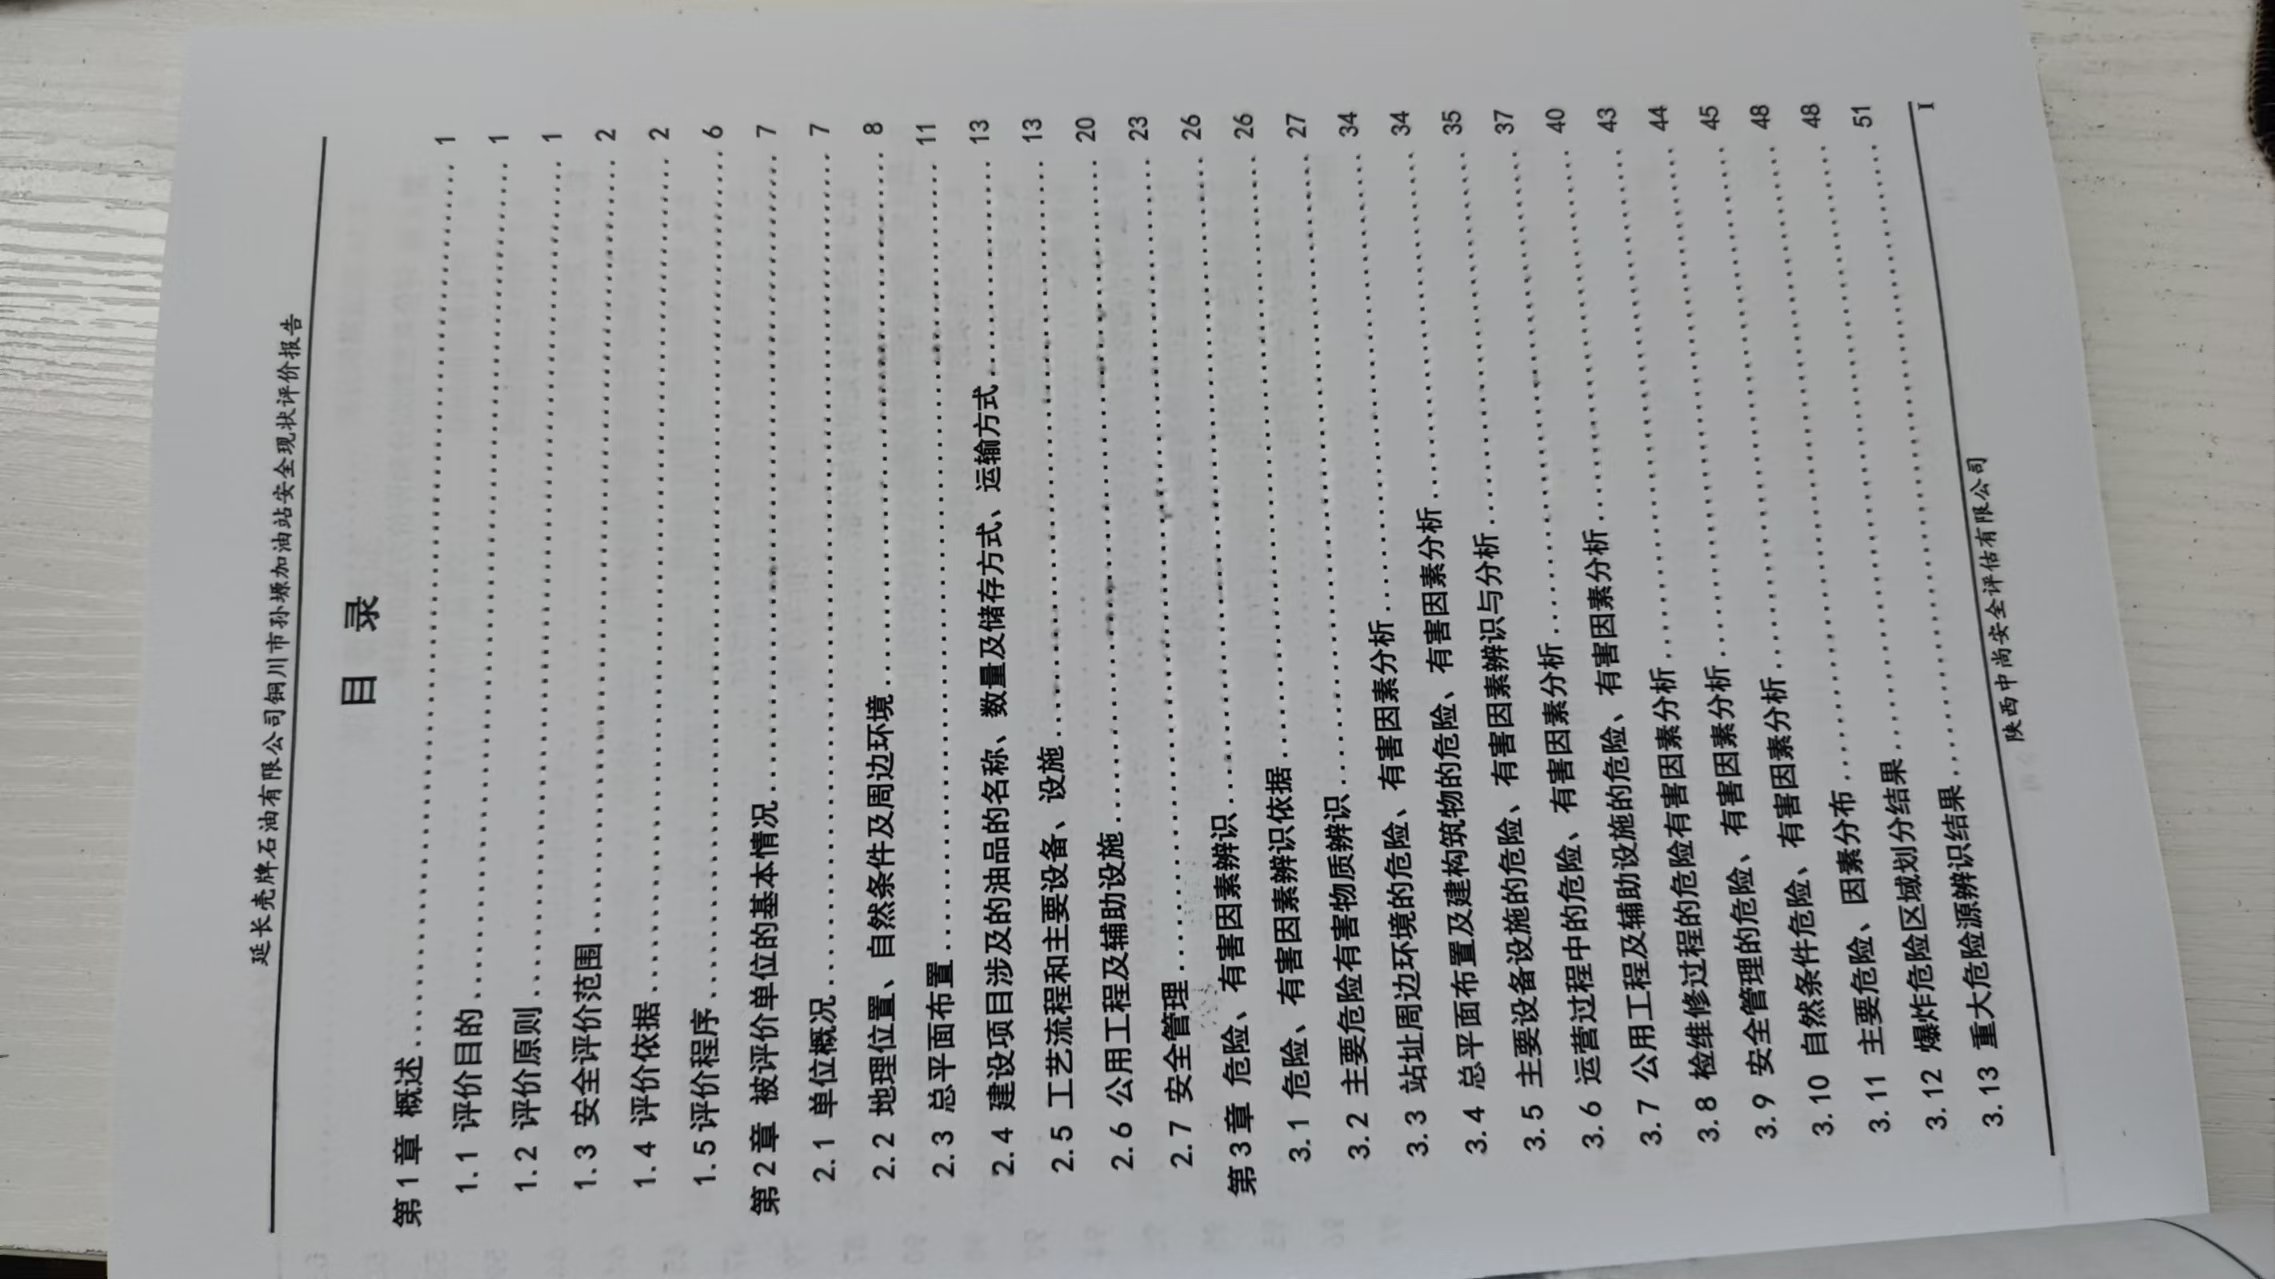 延长壳牌石油有限公司铜川市孙塬加油站安全现状评价报告
目 录
第1章 概述........1
1.1 评价目的........1
1.2 评价原则........1
1.3 安全评价范围........2
1.4 评价依据........2
1.5评价程序........6
第2章 被评价单位的基本情况........7
2.1 单位概况........7
2.2 地理位置、自然条件及周边环境........8
2.3 总平面布置........11
2.4 建设项目涉及的油品的名称、数量及储存方式、运输方式........13
2.5 工艺流程和主要设备、设施........13
2.6 公用工程及辅助设施........20
2.7 安全管理........23
第3章 危险、有害因素辨识........26
3.1 危险、有害因素辨识依据........26
3.2 主要危险有害物质辨识........27
3.3 站址周边环境的危险、有害因素分析........34
3.4 总平面布置及建构筑物的危险、有害因素分析........34
3.5 主要设备设施的危险、有害因素辨识与分析........35
3.6 运营过程中的危险、有害因素分析........37
3.7 公用工程及辅助设施的危险、有害因素分析........40
3.8 检维修过程的危险有害因素分析........43
3.9 安全管理的危险、有害因素分析........44
3.10 自然条件危险、有害因素分析........45
3.11 主要危险、因素分布........48
3.12 爆炸危险区域划分结果........48
3.13 重大危险源辨识结果........51
陕西中尚安全评估有限公司 I